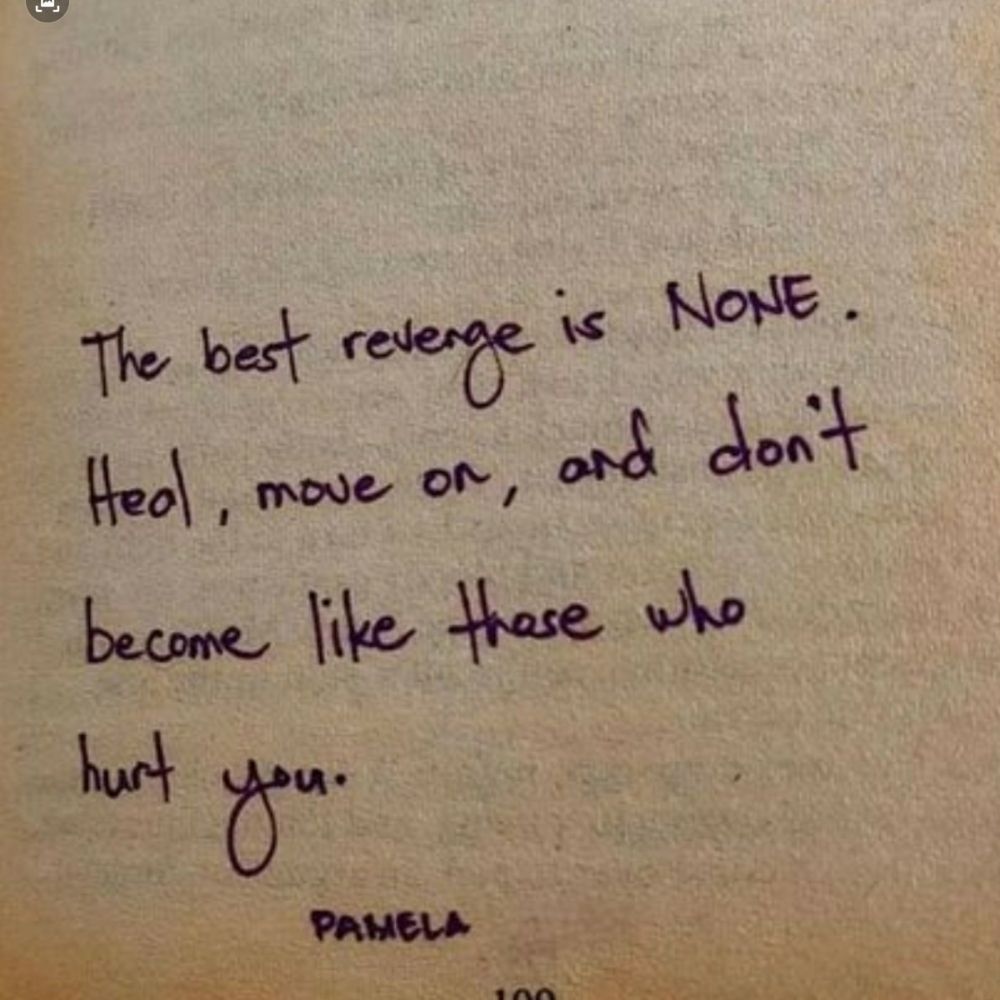 The best revenge is NONE.
Heal, move on, and don't
become like those who
hurt you.
PAMELA